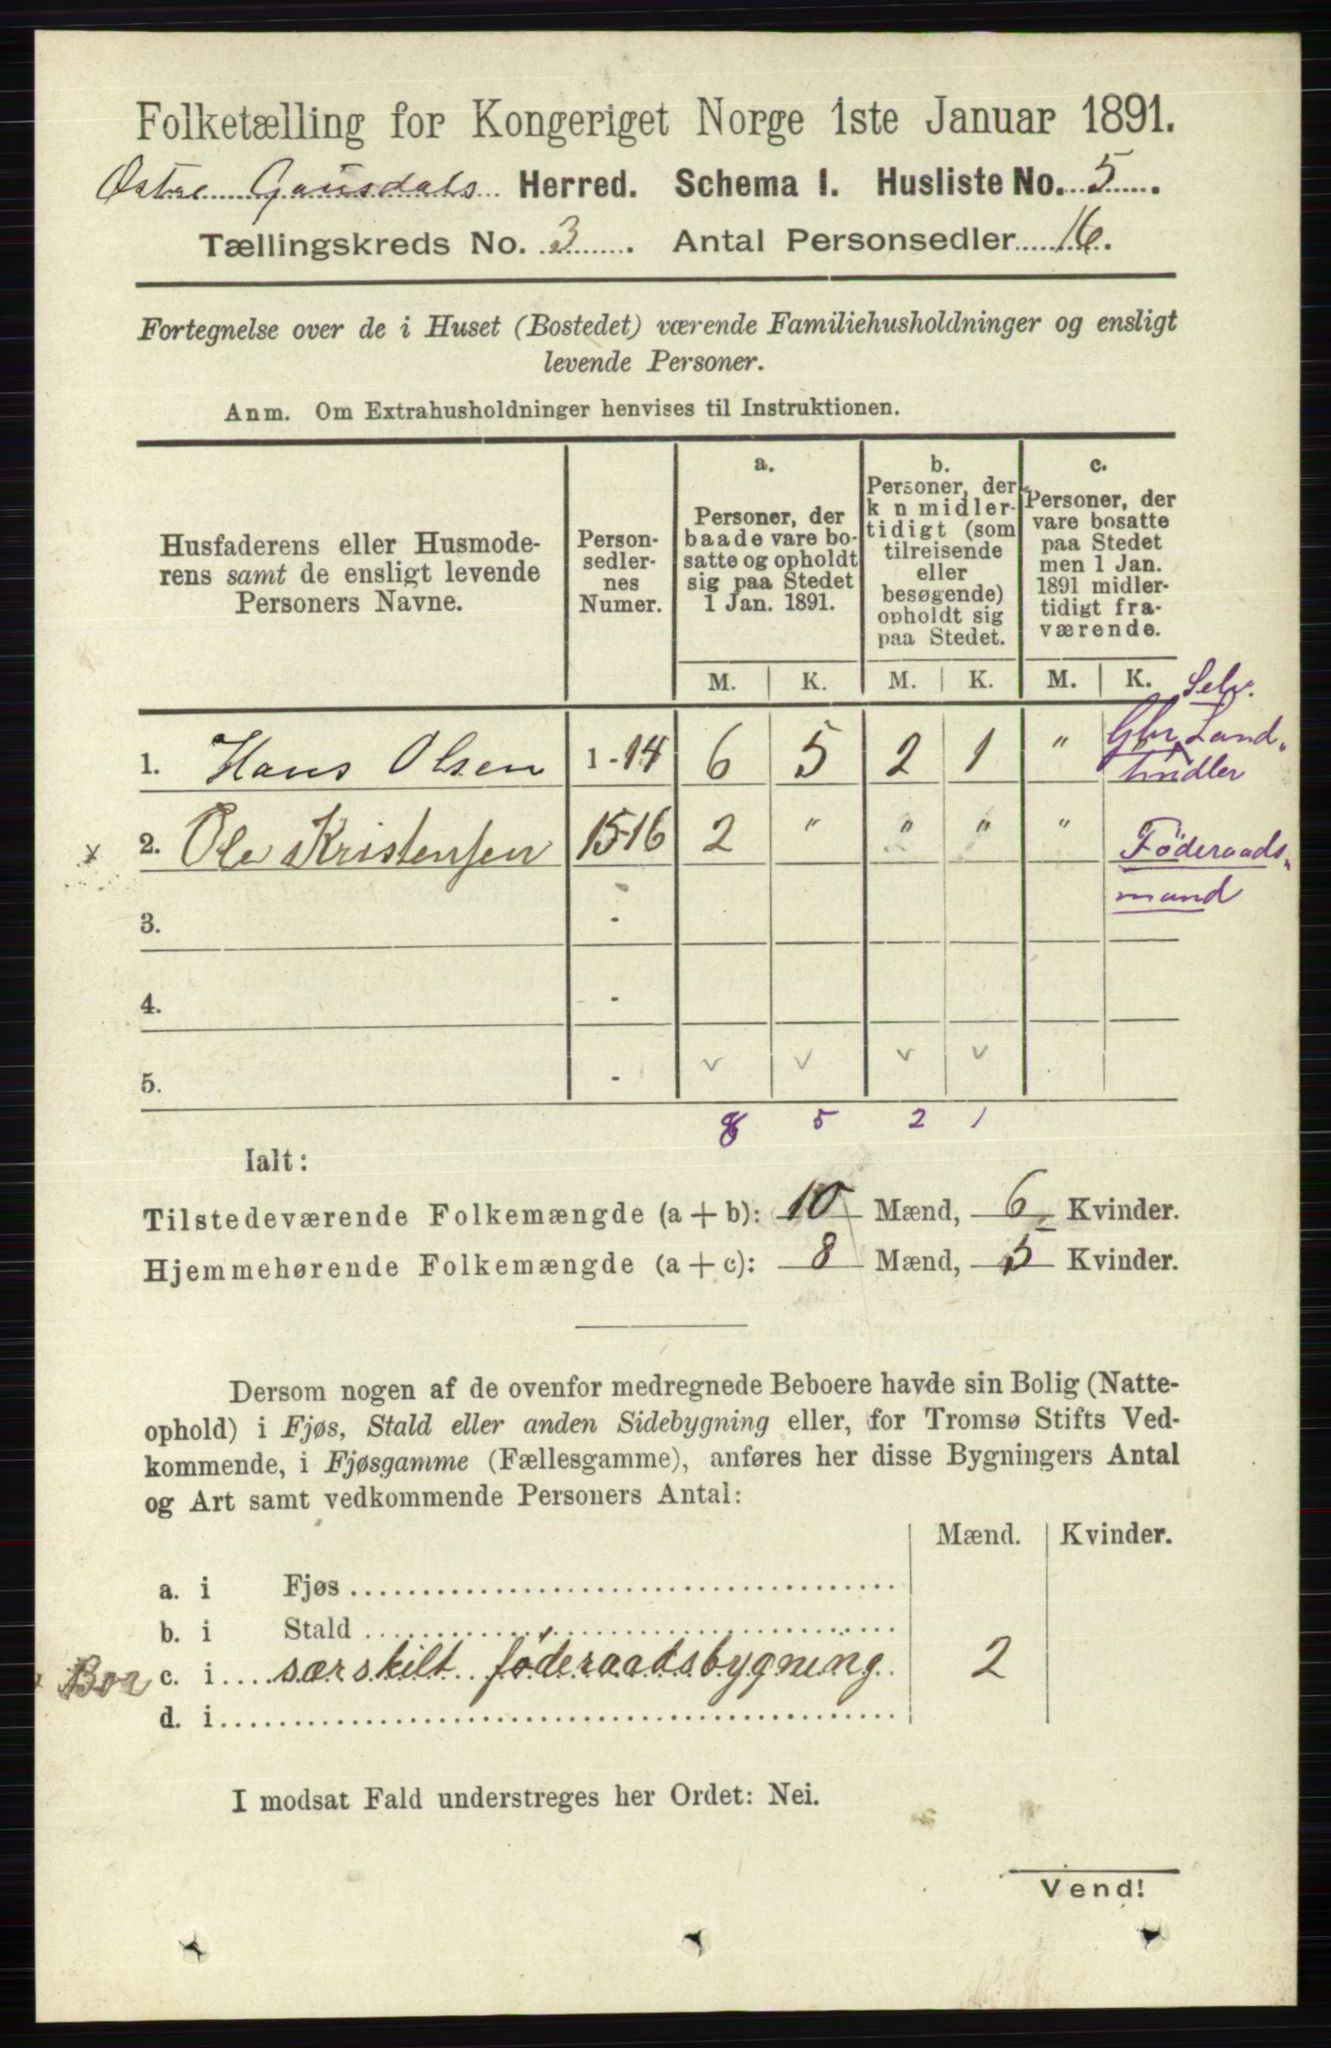 Folketælling for Kongeriget Norge 1ste Januar 1891.
Østre Gausdals Herred. Schema I. Husliste No. 5.
Tællingskreds No. 3. Antal Personsedler 16.
Fortegnelse over de i Huset (Bostedet) værende Familiehusholdninger og ensligt
levende Personer.
Anm. Om Extrahusholdninger henvises til Instruktionen.
Husfaderens eller Husmode-
rens samt de ensligt levende
Personers Navne.
Person-
sedler-
nes
Numer.
a.
Personer, der
baade vare bo-
satte og opholdt
sig paa Stedet
1 Jan. 1891.
b.
Personer, der
k n midler-
tidigt (som
tilreisende
eller
besøgende)
opholdt sig
paa Stedet.
c.
Personer, der
vare bosatte
paa Stedet
men 1 Jan.
1891 midler-
tidigt fra-
værende.
M. K. M. K. M. K.
Selv.
1. Hans Olsen 1-14 6 5 2 1 " Gbr, Land-
hndler
2. Ole Kristensen 15-16 2 " " " " Föderaads-
mand
3. -
4. -
5. -
8 5 2 1
Ialt:
Tilstedeværende Folkemængde (a + b): 10 Mænd, 6 Kvinder.
Hjemmehørende Folkemængde (a + c): 8 Mænd, 5 Kvinder.
Dersom nogen af de ovenfor medregnede Beboere havde sin Bolig (Natte-
ophold) i Fjøs, Stald eller anden Sidebygning eller, for Tromsø Stifts Ved-
kommende, i Fjøsgamme (Fællesgamme), anføres her disse Bygningers Antal
og Art samt vedkommende Personers Antal:
Mænd. Kvinder.
a. i Fjøs
b. i Stald
c. i særskilt føderaadsbygning 2
d. i
I modsat Fald understreges her Ordet: Nei.
Vend!